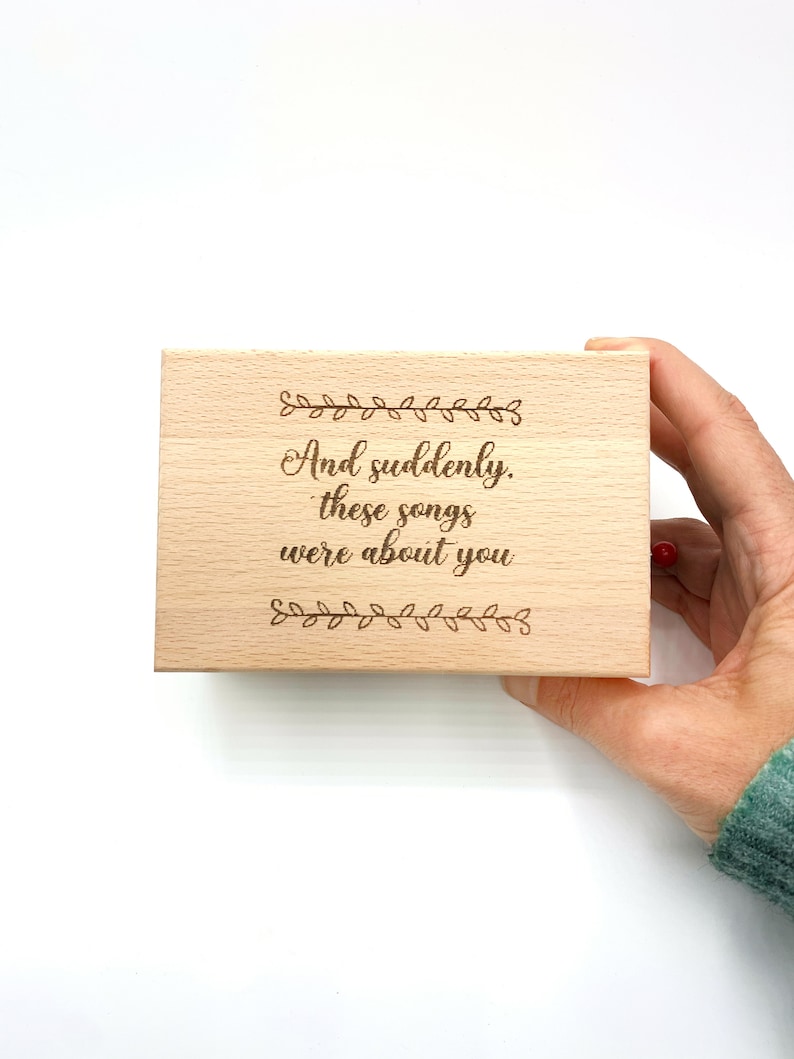 And suddenly,
these songs
were about you